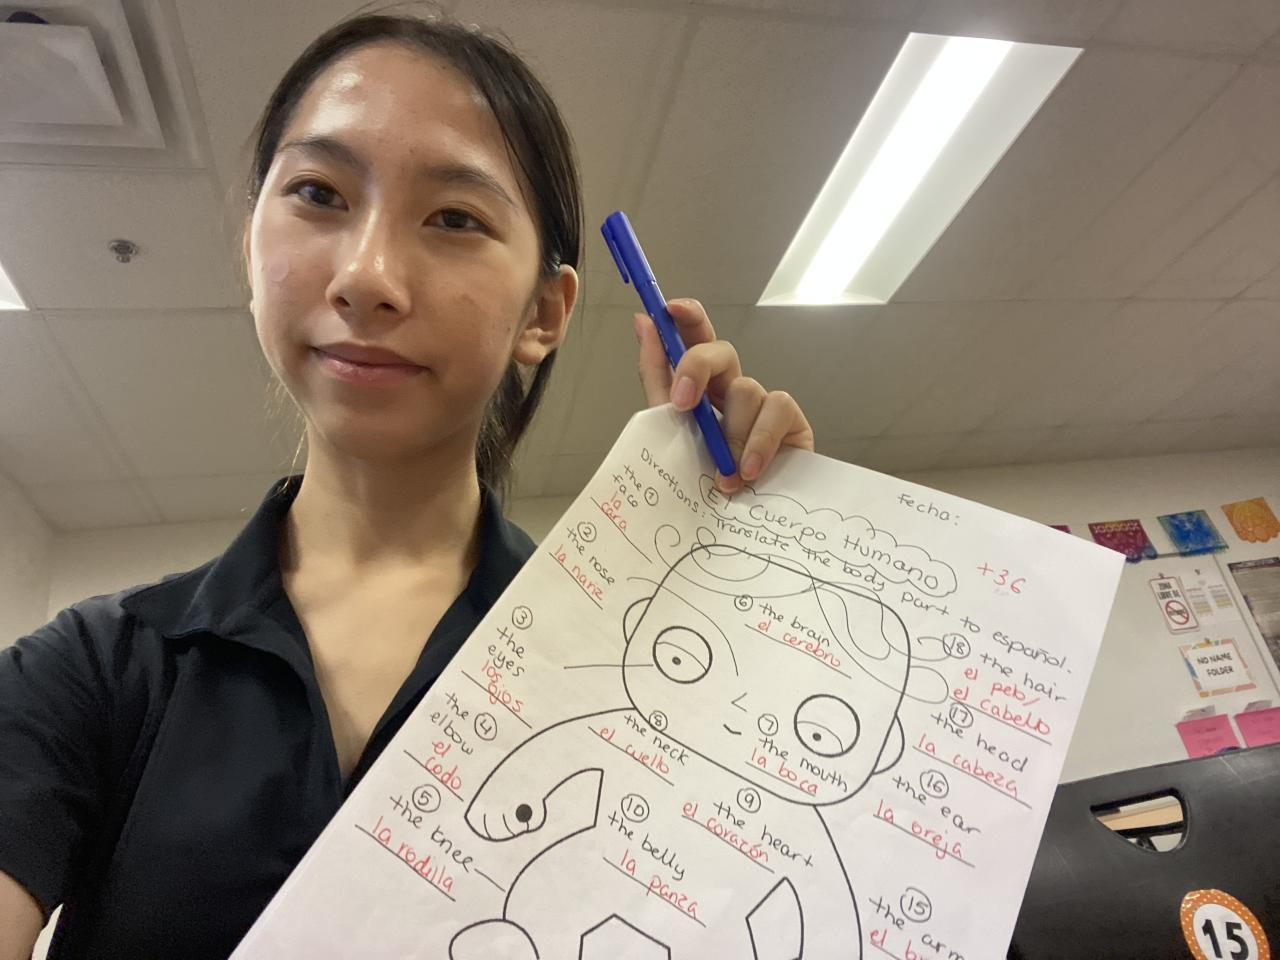 Fecha:
El Cuerpo Humano
+36
Directions: Translate the body part to español.
the ①
face
la
cara
②
the nose
la nariz
③
the
eyes
los
ojos
the ④
elbow
el
codo
⑤
the knee
la rodilla
⑥ the brain
el cerebro
⑦
the mouth
la boca
⑧
the neck
el cuello
⑨
the heart
el corazón
⑩
the belly
la panza
⑱
the hair
el pelo/
el cabello
⑰
the head
la cabeza
⑯
the ear
la oreja
⑮
the arm
el
ZONA
LIBRE DE
NO NAME
FOLDER
15